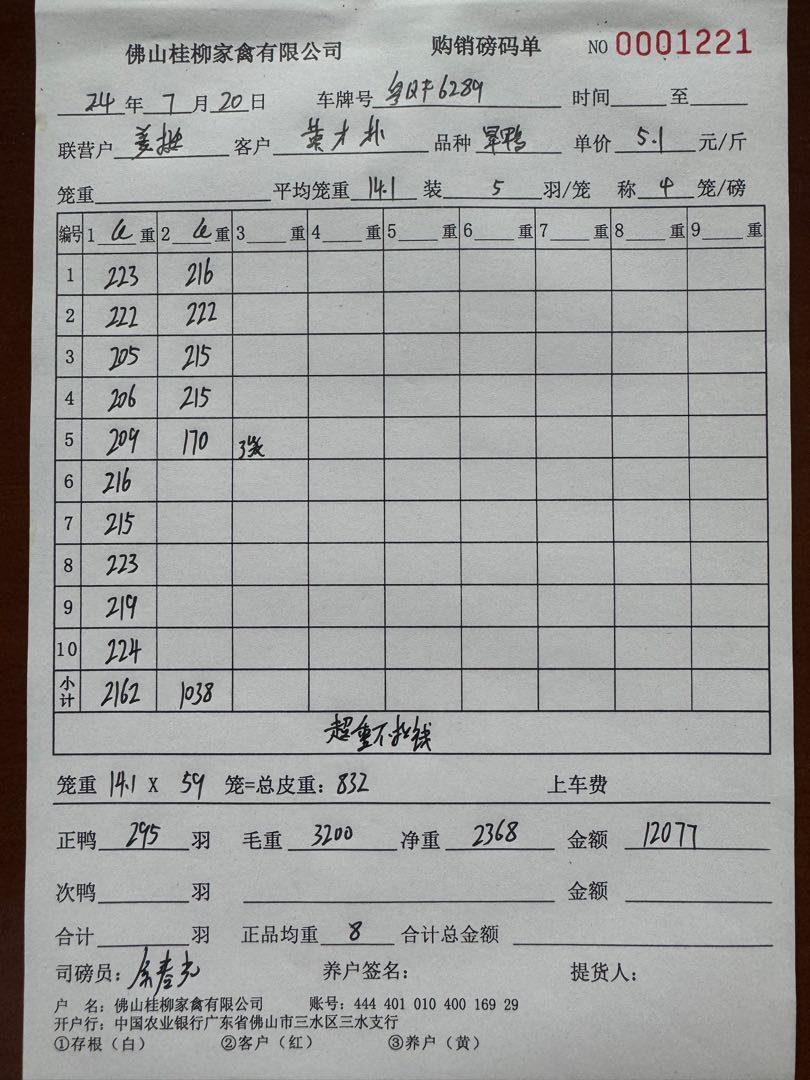 佛山桂柳家禽有限公司 购销磅码单 NO 0001221
24 年 7 月 20 日 车牌号 粤QF6289 时间 至
联营户 客户 品种 旱鸭 单价 5.1 元/斤
笼重 平均笼重 14.1 装 5 羽/笼 称 4 笼/磅
编号 1 重 2 重 3 重 4 重 5 重 6 重 7 重 8 重 9 重
1 223 216
2 222 222
3 205 215
4 206 215
5 209 170 3笼
6 216
7 215
8 223
9 219
10 224
小计 2162 1038
超重不扣钱
笼重 14.1 X 59 笼=总皮重：832 上车费
正鸭 295 羽 毛重 3200 净重 2368 金额 12077
次鸭 羽 金额
合计 羽 正品均重 8 合计总金额
司磅员： 养户签名： 提货人：
户 名：佛山桂柳家禽有限公司 账号：444 401 010 400 169 29
开户行：中国农业银行广东省佛山市三水区三水支行
①存根（白） ②客户（红） ③养户（黄）